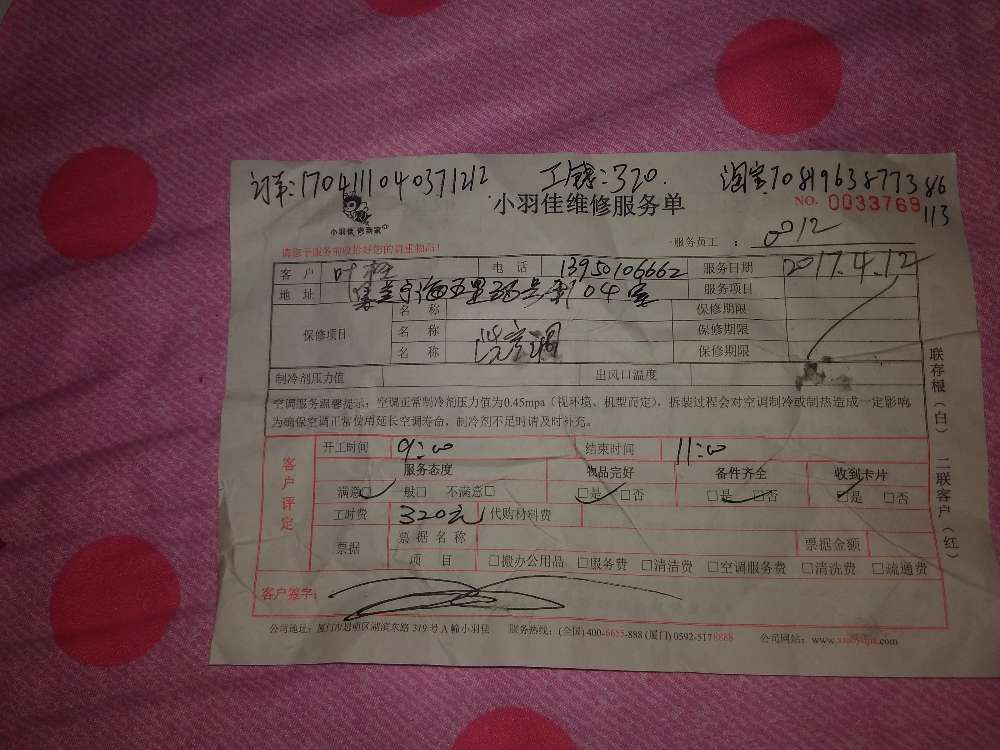 订单:1704111040371212 工钱:320. 淘宝7081963877386
113
小羽佳 您到家
小羽佳维修服务单
NO. 0033769
请您于服务前收拾好您的贵重物品!
服务员工 : 0012
客 户 叶 电 话 13950106662 服务日期 2017.4.12
地 址 宁海五里 号 104室 服务项目
保修项目
名 称 保修期限
名 称 洗空调 保修期限
名 称 保修期限
制冷剂压力值 出风口温度
空调服务温馨提示:空调正常制冷剂压力值为0.45mpa(视环境、机型而定),拆装过程会对空调制冷或制热造成一定影响,
为确保空调正常使用延长空调寿命,制冷剂不足时请及时补充。
客户评定
开工时间 9:00 结束时间 11:00
服务态度 物品完好 备件齐全 收到卡片
满意□ 一般□ 不满意□ □是 □否 □是 □否 □是 □否
工时费 320元 代购材料费
票据 票 据 名 称 票据金额
项 目 □搬办公用品 □服务费 □清洁费 □空调服务费 □清洗费 □疏通费
客户签字:
公司地址:厦门市思明区湖滨东路319号A幢小羽佳 服务热线:(全国)400-6655-888 (厦门) 0592-5178888 公司网站:www.xiaoyujia.com
联存根(白) 二联客户(红)